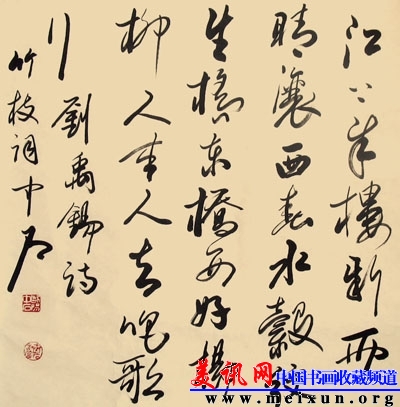 江上朱樓新雨
晴瀼西春水縠紋
生橋東橋西好楊
柳人來人去唱歌
行 劉禹錫詩
竹枝詞中石
美讯网 中国书画收藏频道
www.meixun.org